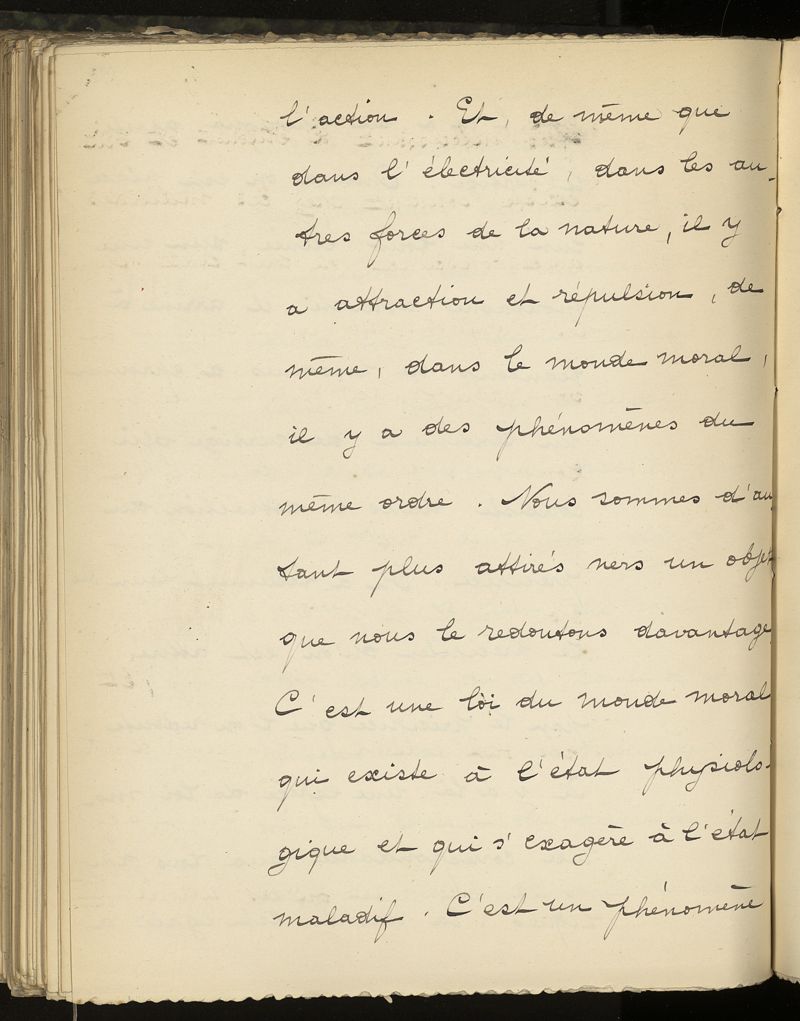 l'action . Et, de même que
dans l'électricité, dans les au-
tres forces de la nature, il y
a attraction et répulsion, de
même, dans le monde moral,
il y a des phénomènes du
même ordre . Nous sommes d'au
tant plus attirés vers un objet
que nous le redoutons davantage
C'est une loi du monde moral
qui existe à l'état physiolo-
gique et qui s'exagère à l'état
maladif . C'est un phénomène